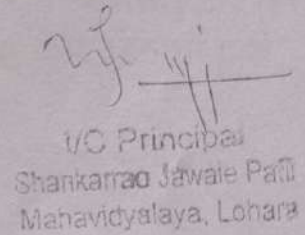 I/C Principal
Shankarrao Jawale Patil
Mahavidyalaya, Lohara